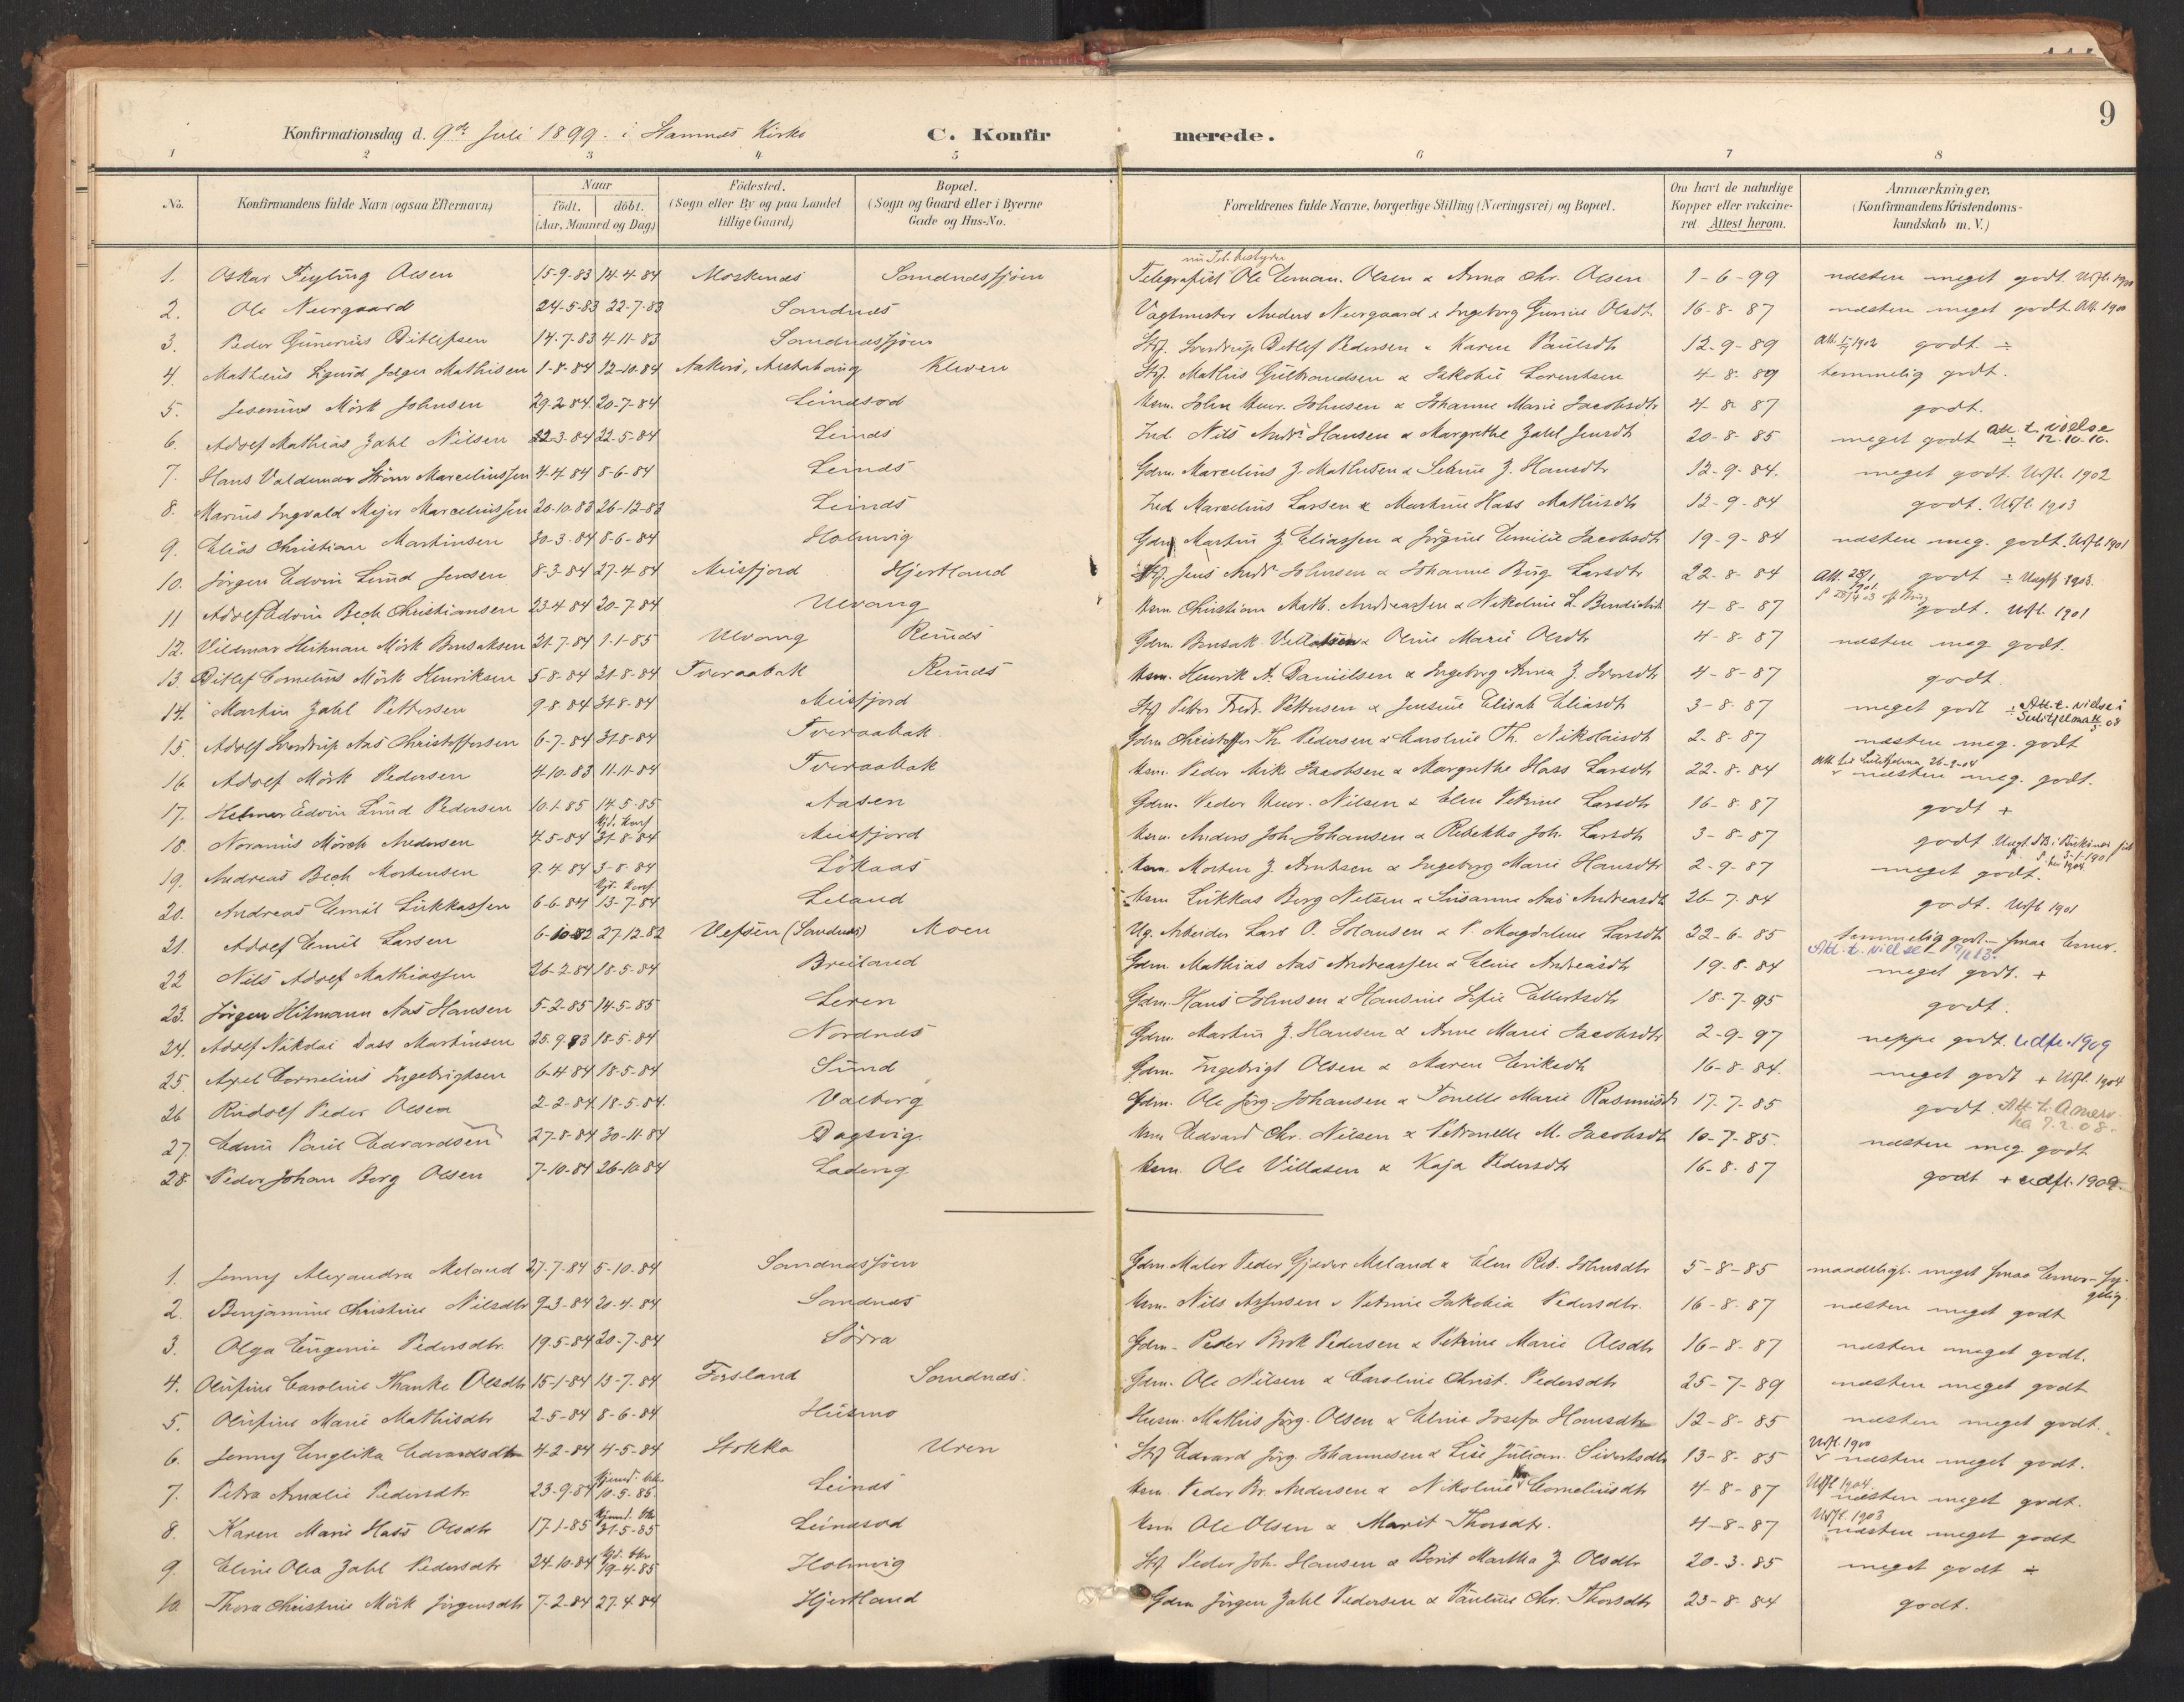 9
Konfirmationsdag d. 9de Juli 1899 i Stamnes Kirke
C. Konfirmerede.
1 2 3 4 5 6 7 8
No. Konfirmandens fulde Navn (ogsaa Efternavn) Naar født, døbt. (Aar, Maaned og Dag) Fødested. (Sogn eller By og paa Landet tillige Gaard) Bopæl. (Sogn og Gaard eller i Byerne Gade og Hus-No. Forældrenes fulde Navne, borgerlige Stilling (Næringsvei) og Bopæl. Om havt de naturlige Kopper eller vakcineret. Attest herom. Anmærkninger. (Konfirmandens Kristendomskundskab m. V.)
1. Oskar Olsen 15-9-83 14-4-84 Moskenes Sandnessjøen Telegrafist Ole Eman. Olsen & Anna Chr. Olsen 1-6-99 næsten meget godt.
2. Ole Neergaard 24-5-83 22-7-83 Sandnes Vagtmester Anders Neergaard & Ingeborg Olsdt. 16-8-87 næsten meget godt. Att. 1900
3. Peder Gunerius Ditlefsen 14-7-83 4-11-83 Sandnessjøen Stf. Sverdrup Ditlef Pedersen & Karen Paulsdtr 12-9-89 godt ÷
4. Mathæus Sigurd Jelger Mathisen 1-8-84 12-10-84 Kleven Stf. Mathis Gulbrandsen & Jakobie Lorentsen 4-8-89 temmelig godt.
5. Jesenius Mörk Johnsen 29-2-84 20-7-84 Leinesod Hsm. John Johnsen & Johanne Marie Jacobsdtr 4-8-87 godt.
6. Adolf Mathias Zahl Nilsen 22-3-84 22-5-84 Leines Ind. Nils Andr. Hansen & Margrethe Zahl Jensdtr 20-8-85 meget godt Att. t. vielse 12.10.10.
7. Hans Valdemar Ström Marceliussen 4-4-84 8-6-84 Leines Gdm. Marcelius J. Mathisen & Z. Hansdtr 12-9-84. meget godt. Udfl. 1902
8. Marius Ingvald Mejer Marceliussen 20-10-83 26-12-83 Leines Ind. Marcelius Larsen & Martine Hass Mathisdtr 12-9-84 godt. Udfl. 1903
9. Elias Christian Martinsen 30-3-84 8-6-84 Holmvig Gdm. Martin Z. Eliassen & Jörgine Emilie Jacobsdtr 19-9-84 næsten meg. godt. Udfl. 1901
10. Jörgen Edvin Lund Jensen 8-3-84 27-4-84 Meisfjord Hjertland Stf. Jens Andr. Johnsen & Johanne Birg. Larsdtr 22-8-84 godt ÷
11 Adolf Edvin Bech Christiansen 23-4-84 20-7-84 Ulvang Hsm. Christian Math. Andreassen & Nikoline L. 4-8-87 godt. Udfl. 1901
12. Vildmar Heitman Mörk Bensaksen 21-7-84 1-1-85 Ulvang Reines Gdm. Bensak & Oline Marie Olsdtr 4-8-87 næsten meg godt.
13. Ditlef Cornelius Mörk Henriksen 5-8-84 31-8-84 Tveraabak Reines Hsm. Henrik A. Danielsen & Ingeborg Anna J. Iversdtr 4-8-87 godt.
14. Martin Zahl Pettersen 9-8-84 31-8-84 Meisfjord Stf. Petter Fredr. Pettersen & Jensine Elisab. Eliasdtr 3-8-87 meget godt ÷ Att. t. vielse i Sulitjelma 08
15 Adolf Sverdrup Aas Christoffersen 6-7-84 31-8-84 Tveraabak. Gdm. Christoffer Th. Pedersen & Caroline Th. Nikolaisdt 2-8-87 næsten meg. godt
16 Adolf Mörk Pedersen 4-10-83 11-11-84 Tveraabak Hsm. Peder Mik. Jacobsen & Margrethe Hass Larsdtr 22-8-84 næsten meg. godt.
17. Helmer Edvin Lund Pedersen 10-1-85 14-5-85 Aasen Gdm. Peder Nilsen & Elen Petrine Larsdtr 16-8-87 godt +
18. Noranius Mörch Andersen 4-5-84 31-8-84 Meisfjord Hsm. Anders Joh. Johansen & Rebekka Joh. Larsdtr 3-8-87 godt
19. Andreas Bech Mortensen 9-4-84 3-8-84 Lökaas Hsm. Morten J. Arntsen & Ingeborg Marie Hansdtr 2-9-87 meget godt.
20. Andreas Emil Lukkassen 6-6-84 13-7-84 Leland Hsm. Lukkas Borg Nilsen & Susanne Aas Andreasdt 26-7-84 godt. Udfl. 1901
21. Adolf Emil Larsen 6-10-82 27-12-82 Vefsen (Sandnes) Moen Ug. Arbeider Lars O. Johansen & P. Magdalena Larsdtr 22-6-85 temmelig godt - smaa Evner.
22 Nils Adolf Mathiassen 26-2-84 18-5-84 Breiland Gdm. Mathias Aas Andreassen & Eline Andreasdtr 19-8-84 Att. t. vielse meget godt. +
23. Jörgen Hitmann Aas Hansen 5-2-85 14-5-85 Leren Gdm. Hans Johnsen & Hansine Sofie Ellertsdtr 18-7-95 godt.
24. Adolf Nikolai Dass Martinsen 25-9-83 18-5-84 Nordnes Gdm. Martin J. Hansen & Anne Marie Jacobsdtr 2-9-97 neppe godt. Udfl. 1909
25. Axel Cornelius Ingebrigtsen 6-4-84 18-5-84 Sund Gdm. Ingebrigt Olsen & Maren Eriksdtr 16-8-84. meget godt + Udfl. 1904
26 Rudolf Peder Olsen 2-2-84 18-5-84. Valberg Gdm. Ole Jörg. Johansen & Tonelle Marie 17-7-85 godt. Att. t. Amerika 7.2.08.
27. Edvin Paul Edvardsen 27-8-84 30-11-84 Dagsvig Hsm. Edvard Chr. Nilsen & Petronelle M. Jacobsdt 10-7-85. næsten meg godt
28. Peder Johan Berg Olsen 7-10-84 26-10-84 Ladeng Hsm. Ole Villasen & Kaja Pedersdtr 16-8-87 godt + udfl. 1902.
1. Jenny Alexandra Meland 27-7-84 5-10-84 Sandnessjöen Gdm. Maler Peder Meland & Elen Reb. Johnsdtr 5-8-85 maadeligt. meget smaa Evner
2. Benjamine Christine Nilsdtr 9-3-84 20-4-84 Sandnes Hsm. Nils Assersen & Petrine Jakobia Pedersdtr. 16-8-87 næsten meget godt
3. Olga Eugenie Pedersdtr. 19-5-84 20-7-84 Sörra Gdm. Peder Pedersen & Petrine Marie Olsdtr 16-8-87 næsten meget godt.
4. Olufine Caroline Hanke Olsdtr 15-1-84 13-7-84 Forsland Sandnes. Gdm. Ole Nilsen & Caroline Christ. Pedersdtr 25-7-89 næsten meget godt
5. Olufine Marie Mathisdtr 2-5-84 8-6-84 Husmo Husm. Mathis Jörg. Olsen & Elina Josefa Hansdtr 12-8-85 næsten meget godt.
6. Jenny Englika Edvardsdtr 4-2-84 4-5-84 Stokka Uren Stf Edvard Jörg. Johannesen & Lise Julian. Sivertsdtr 13-8-85 Udfl. 1900 næsten meget godt.
7. Petra Amalie Pedersdtr. 23-9-84 10-5-85 Leines Hsm. Peder Br. Andersen & Nikoline Corneliusdtr 4-8-87 Udfl 1904. næsten meget godt.
8. Karen Marie Hass Olsdtr 17-1-85 31-5-85 Leinesod Hsm Ole Olsen & Marit Thorsdtr. 4-8-87 Udfl. 1903 næsten meget godt
9. Eline Olea Zahl Pedersdtr 24-10-84 19-4-85 Holmvig Stf Peder Joh. Hansen & Berit Martha J. Olsdtr 20-3-85 meget godt ÷
10. Thora Christine Mörk Jörgensdtr 7-2-84 27-4-84 Hjertland Gdm Jörgen Zahl Pedersen & Pauline Chr. Thorsdtr 23-8-84 godt.